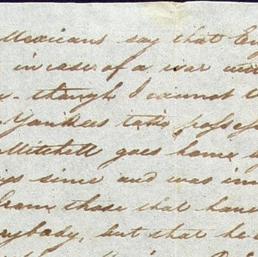 Mexicans say that
in case of a war
though I cannot
Yankees take possess
Mitchell goes home
since and was
those that have
rybody, but that he